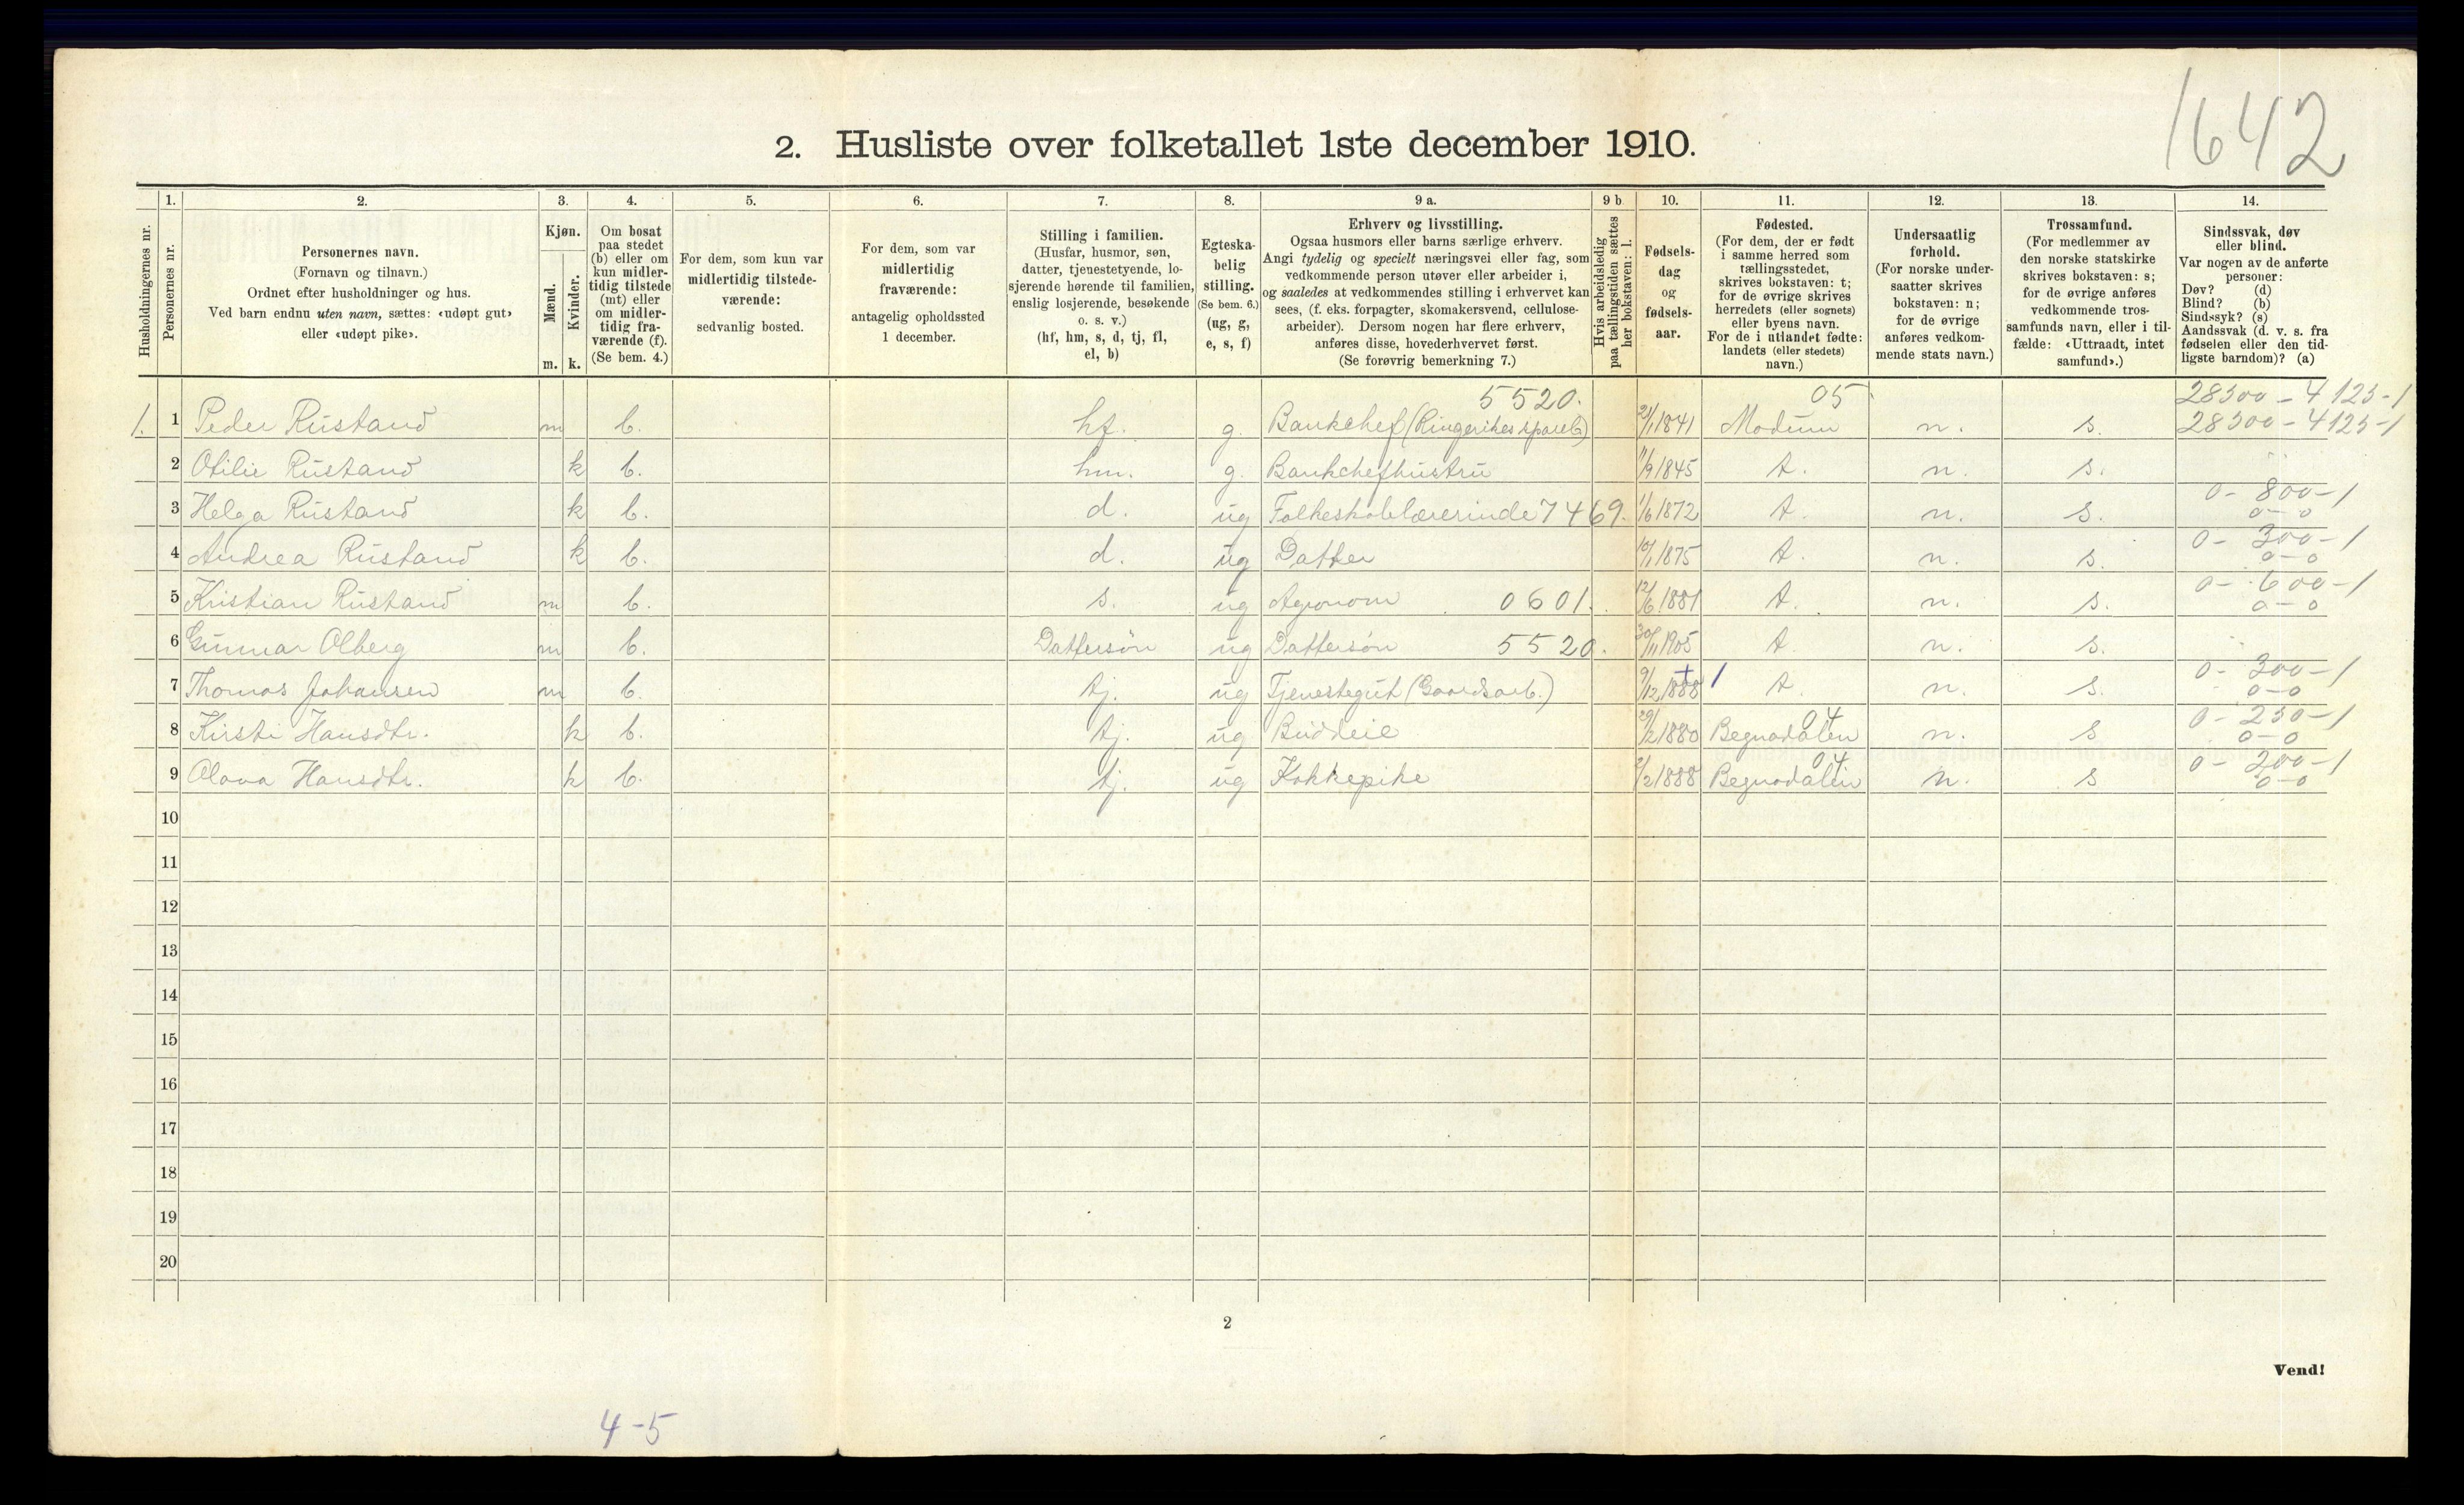 1642
2. Husliste over folketallet 1ste december 1910.
Husholdningernes nr.
1. Personernes nr.
2. Personernes navn.
(Fornavn og tilnavn.)
Ordnet efter husholdninger og hus.
Ved barn endnu uten navn, sættes: «udøpt gut»
eller «udøpt pike».
3. Kjøn.
Mænd. m.
Kvinder. k.
4. Om bosat
paa stedet
(b) eller om
kun midler-
tidig tilstede
(mt) eller
om midler-
tidig fra-
værende (f).
(Se bem. 4.)
5. For dem, som kun var
midlertidig tilstede-
værende:
sedvanlig bosted.
6. For dem, som var
midlertidig
fraværende:
antagelig opholdssted
1 december.
7. Stilling i familien.
(Husfar, husmor, søn,
datter, tjenestetyende, lo-
sjerende hørende til familien,
enslig losjerende, besøkende
o. s. v.)
(hf, hm, s, d, tj, fl,
el, b)
8. Egteska-
belig
stilling.
(Se bem. 6.)
(ug, g,
e, s, f)
9 a. Erhverv og livsstilling.
Ogsaa husmors eller barns særlige erhverv.
Angi tydelig og specielt næringsvei eller fag, som
vedkommende person utøver eller arbeider i,
og saaledes at vedkommendes stilling i erhvervet kan
sees, (f. eks. forpagter, skomakersvend, cellulose-
arbeider). Dersom nogen har flere erhverv,
anføres disse, hovederhvervet først.
(Se forøvrig bemerkning 7.)
9 b. Hvis arbeidsledig
paa tællingstiden sættes
her bokstaven: l.
10. Fødsels-
dag
og
fødsels-
aar.
11. Fødested.
(For dem, der er født
i samme herred som
tællingsstedet,
skrives bokstaven: t;
for de øvrige skrives
herredets (eller sognets)
eller byens navn.
For de i utlandet fødte:
landets (eller stedets)
navn.)
12. Undersaatlig
forhold.
(For norske under-
saatter skrives
bokstaven: n;
for de øvrige
anføres vedkom-
mende stats navn.)
13. Trossamfund.
(For medlemmer av
den norske statskirke
skrives bokstaven: s;
for de øvrige anføres
vedkommende tros-
samfunds navn, eller i til-
fælde: «Uttraadt, intet
samfund».)
14. Sindssvak, døv
eller blind.
Var nogen av de anførte
personer:
Døv? (d)
Blind? (b)
Sindssyk? (s)
Aandssvak (d. v. s. fra
fødselen eller den tid-
ligste barndom)? (a)
5520. 05 28500 - 4125-1
1. 1 Peder Rustand m b. hf. g. Bankchef (Ringerikes spareb) 21/1 1841 Modum n. s. 28500 - 4125-1
2 Otilie Rustand k b. hm. g. Bankchefhustru 11/9 1845 t. n. s.
0- 800-1
3 Helga Rustand k b. d. ug Folkeskolelærerinde 7469. 1/6 1872 t. n. s. 0-0
0- 300-1
4 Andrea Rustand k b. d. ug Datter 10/1 1875 t. n. s. 0-0
0- 600-1
5 Kristian Rustand m b. s. ug Agronom 0601. 12/6 1881 t. n. s. 0-0
6 Gunnar Olberg m b. Dattersøn ug Dattersøn 5520. 30/11 1905 t. n. s.
0- 300-1
7 Thomas Johansen m b. tj. ug Tjenestegut (Gaardsarb.) 9/12 1888 t. n. s. 0-0
04 0- 250-1
8 Kirsti Hansdtr. k b. tj. ug Buddeie 29/2 1880 Begnadalen n. s 0-0
04 0- 200-1
9 Olava Hansdtr. k b. tj. ug Kokkepike 2/2 1888 Begnadalen n. s 0-0
10
11
12
13
14
15
16
17
18
19
20
2
Vend!
4-5